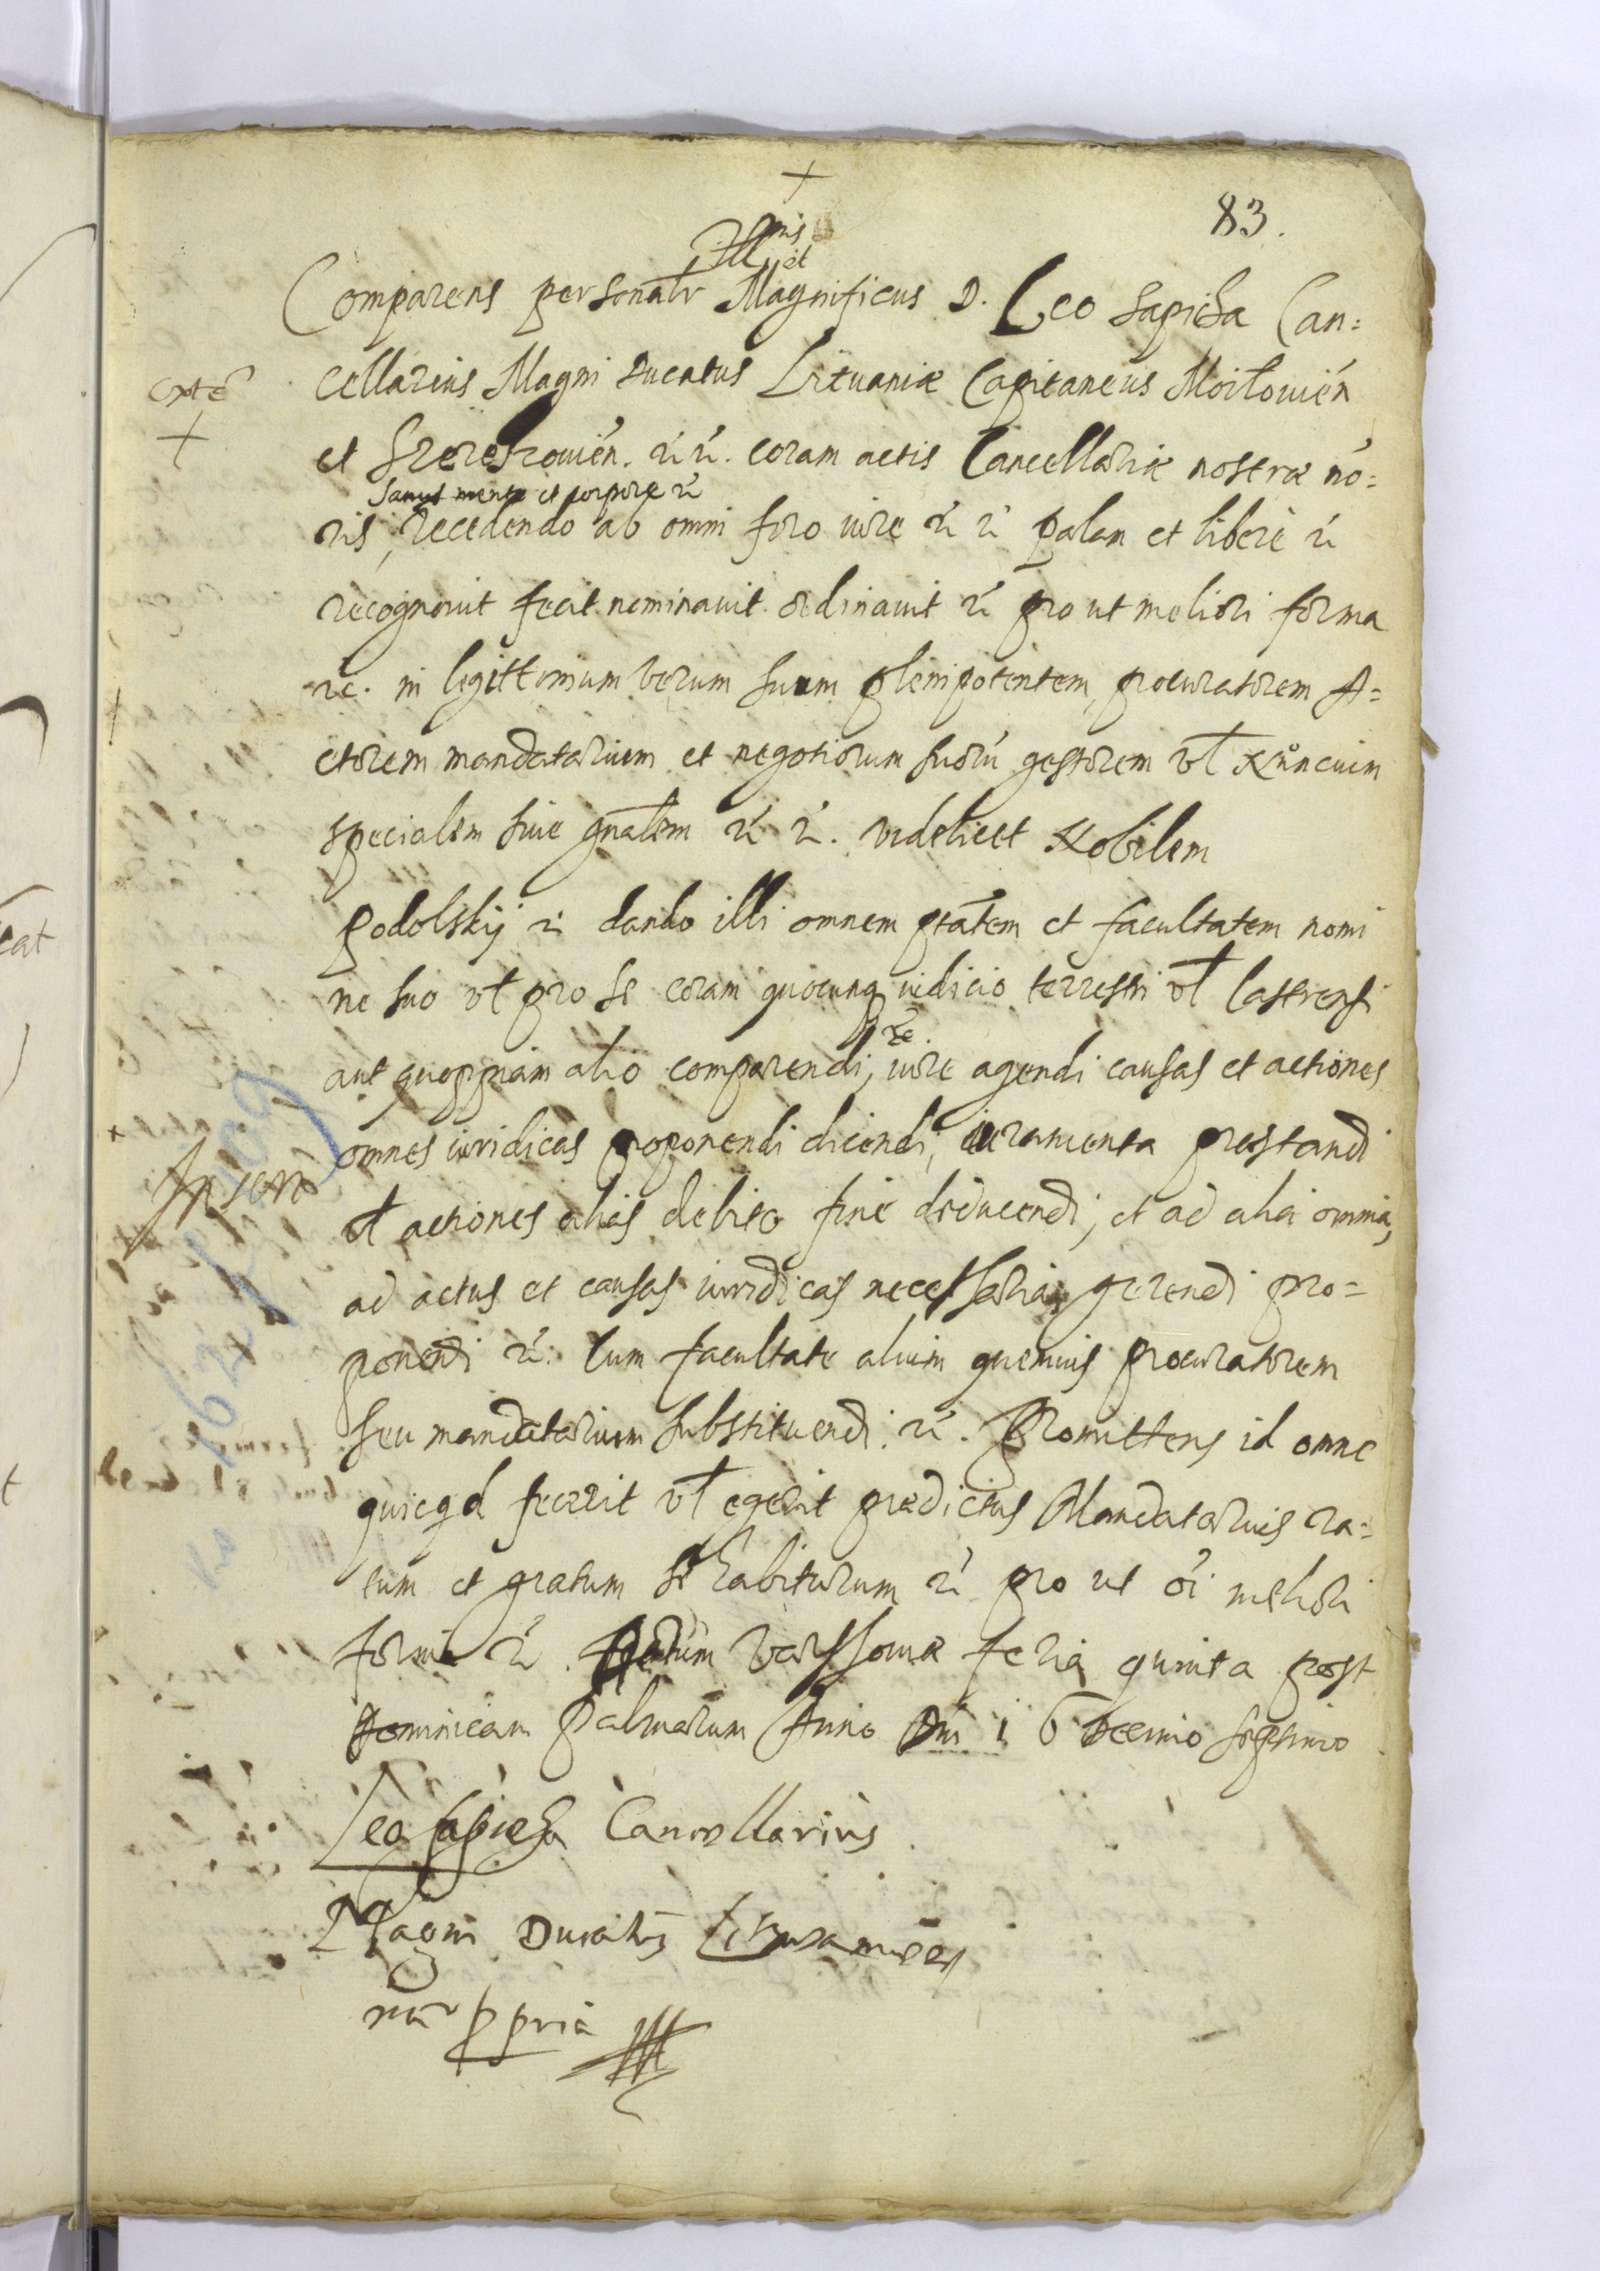 83.
Illris et
Comparens personalr Magnificus D. Leo Sapieha Can=
cellarius Magni Ducatus Lituaniæ Capitaneus Moilouien
et Szereszouien. rc rc. coram actis Cancellariæ nostræ no=
sanus mente et corpore rc
ris, recedendo ab omni foro iure rc rc palam et libere rc
recognouit fecit nominauit ordinauit rc pro ut meliori forma
rc. in legittimum verum suum plenipotentem procuratorem A=
ctorem mandatarium et negotiorum suorū gestorem vl Nuncium
specialem siue gnalem rc rc. videlicet Nobilem
Podolskij rc dando illi omnem ptatem et facultatem nomi
ne suo vl pro se coram quocunq iudicio terrestri vl Castrensi
rc.
aut quoppiam alio comparendi, iure agendi causas et actiones
omnes iuridicas proponendi dicendi, iuramenta prestandi
Inseri
vl actiones alias debito fine deducendi, et ad alia omnia,
ad actus et causas iuridicas necessaria gerendi pro=
ponendi rc. Cum facultate alium quemuis procuratorem
seu mandatarium substituendi. rc. Promittens id omne
quicqd fecerit vl egerit prædictus Mandatarius ra=
tum et gratum se habiturum rc pro ut oi meliori
forma rc. Actum Varssouiæ feria quinta post
Dominicam Palmarum Anno Dni 1 6 decimo septimo
Leo Sapieha Cancellarius
Magni Ducatus
mā ppria